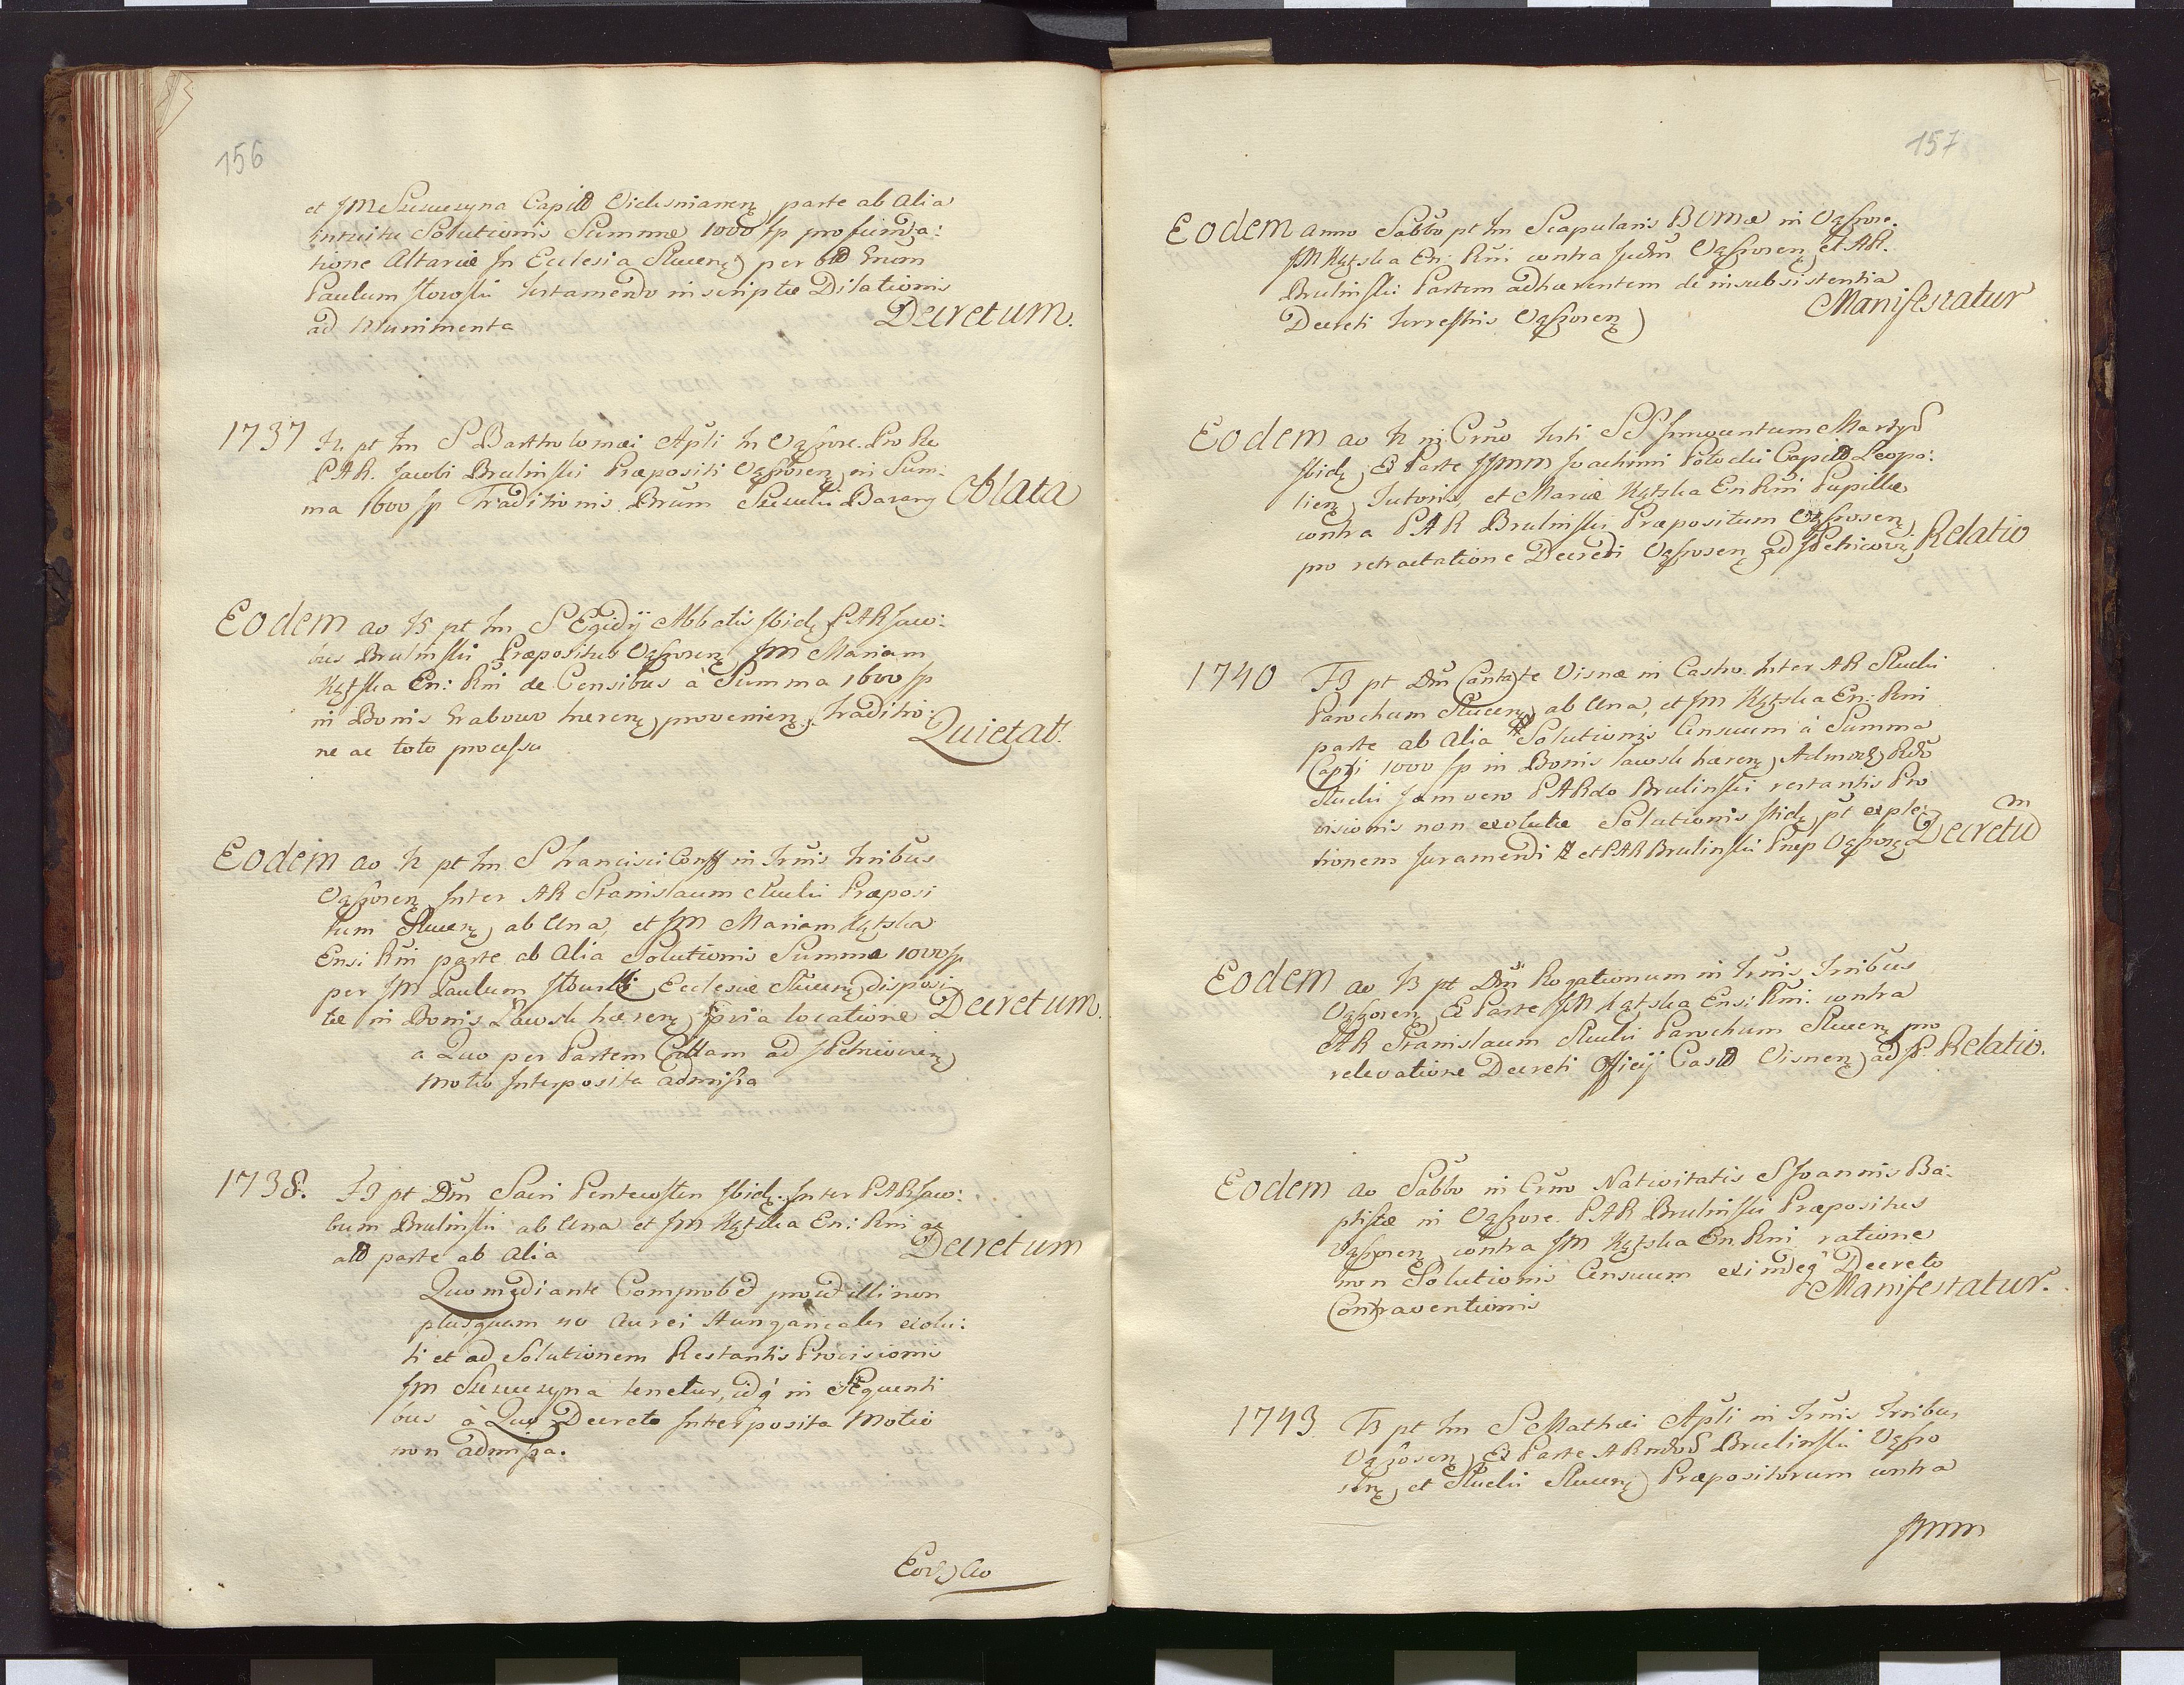 156
et JM Szcuczyna Capitd Viclisnianenę parte ab Alia
intuitu Solutionis Summæ 1000 fp pro funda:
tione Altariæ In Ecclesia Slucenę) per old Grum
Paulum Ilowski testamento inscriptæ Dilationis
ad Munimenta Decretum.
1737 Fr. pt fm S Bartholomæi Apli In Vąssore. Pro Re
PAR. Jacobi Brulinski Præpositi Vąsosenę in Sum:
ma 1600 fp Traditionis Brum Szczuki Barany Oblata
Eodem ao F5 pt fm S Egidÿ Abbatis Ibidę PAR Jaco:
bus Brulinski Præpositus Vąssosenę JM Mariam
Kątska En: Rni de Censibus à Summa 1600 fp
in Bonis Grabowo hærenę provenienę, traditio:
ne ac toto processu Quietat.
Eodem ao F2 pt fm S Francisci Conff in Trnis Trnibus
Vąssosenę Inter AR Stanislaum Sluchi Præposi
tum Slucenę ab Una, et JM Mariam Kątska
Ensi Rni parte ab Alia Solutionis Summæ 1000 fp
per JM Paulum Ilowski Ecclesiæ Slucenę disposi
tæ in Bonis Lawsk hærenę pria locatione Decretum.
a Quo per Partem Cittam ad JPetricovenę
motio Interposita admissa
1738. F3 pt Dm Sacri Pentecosten Ibidę Inter PAR Jaco:
bum Brulinski ab Una et JM Kątska En: Rni ac
ald parte ab Alia Decretum
Quo mediante Comprobd providilli non
plusquam 40 Aurei Hungaricales exolu:
ti et ad Solutionem Restantis Provisionis
JM Szcuczyna tenetur, idq́ in Sequenti
bus à Quo Decreto Interposita Motio
non admissa.
Eodę Ao
157
Eodem anno Sabbo pt fm Scapularis BVMæ in Vąssore.
JM Kątska En: Rni contra Judm Vąssosenę et AR.
Brulinski Partem adhærentem de insubsistentia
Decreti terrestris Vąssosenę) Manifestatur
Eodem ao F2 in Crno festi SS Innocentum Martyr
Ibidę Ex Parte JJMM Joachimi Potocki Capitd Leopo:
lienę Tutoris, et Mariæ Kątska En Rni Pupillæ
contra PAR Brulinski Præpositum Vąssosenę
pro retractatione Decreti Vąssosenę ad JPetricovię Relatio
1740 F3 pt Dm Cantate Visnæ in Castro. Inter AR Sluchi
Parochum Slucenę ab Una, et JM Kątska En: Rni
parte ab Alia Solutionis Censuum à Summa
Capti 1000 fp in Bonis Lawsk hærenę, Admodę Rdo
Sluchi Jam vero PARdo Brulinski restantis Pro
visionis non exolutæ Solutionis Ibidę pt exple:
tionem Juramendi et PAR Brulinski Præp Vąssosę Decretum
Eodem ao F3 pt Dm Rogationum in Trnis Trnibus
Vąssosenę Ex Parte JM Kątska Ens: Rni: contra
AR Stanislaum Sluchi Parochum Slucenę pro
relevatione Decreti Officÿ Castd Visnenę ad JP. Relatio.
Eodem ao Sabbo in Crno Nativitatis S Joannis Ba:
ptistæ in Vąssore. PAR Brulinski Præpositus
Vąssosenę contra JM Kątska En Rni ratione
non Solutionis Censuum exindeq́ Decreto
Contraventionis Manifestatur.
1743 F3 pt fm S Mathæi Apli in Trnis Trnibus
Vąssosenę Ex Parte ARndoS Brulinski Vąsso
senę et Sluchi Slucenę) Præpositorum contra
JMM